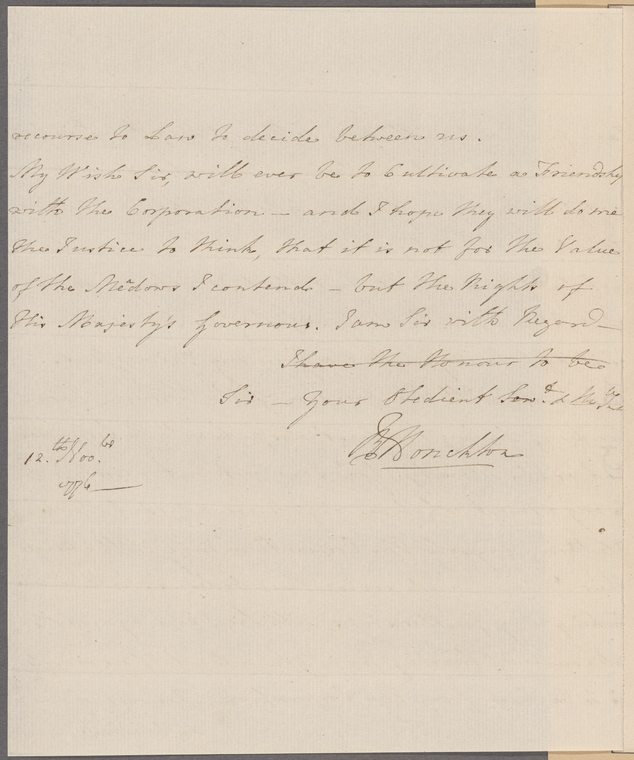 recourse to Law to decide between us.
My Wish Sir, will ever be to Cultivate a Friendship
with the Corporation – and I hope they will do me
the Justice to think, that it is not for the Value
of the Medows I contend – but the Rights of
His Majesty's Governour. I am Sir with Regard –
I have the Honour to be
Sir – Your Obedient Serv.t &
R Monckton
12.th Nov.br